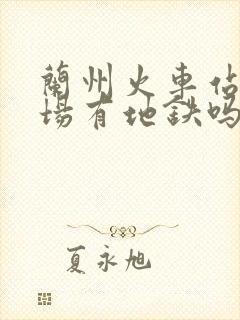 蘭州火車站
場有地鉄吗
夏永旭